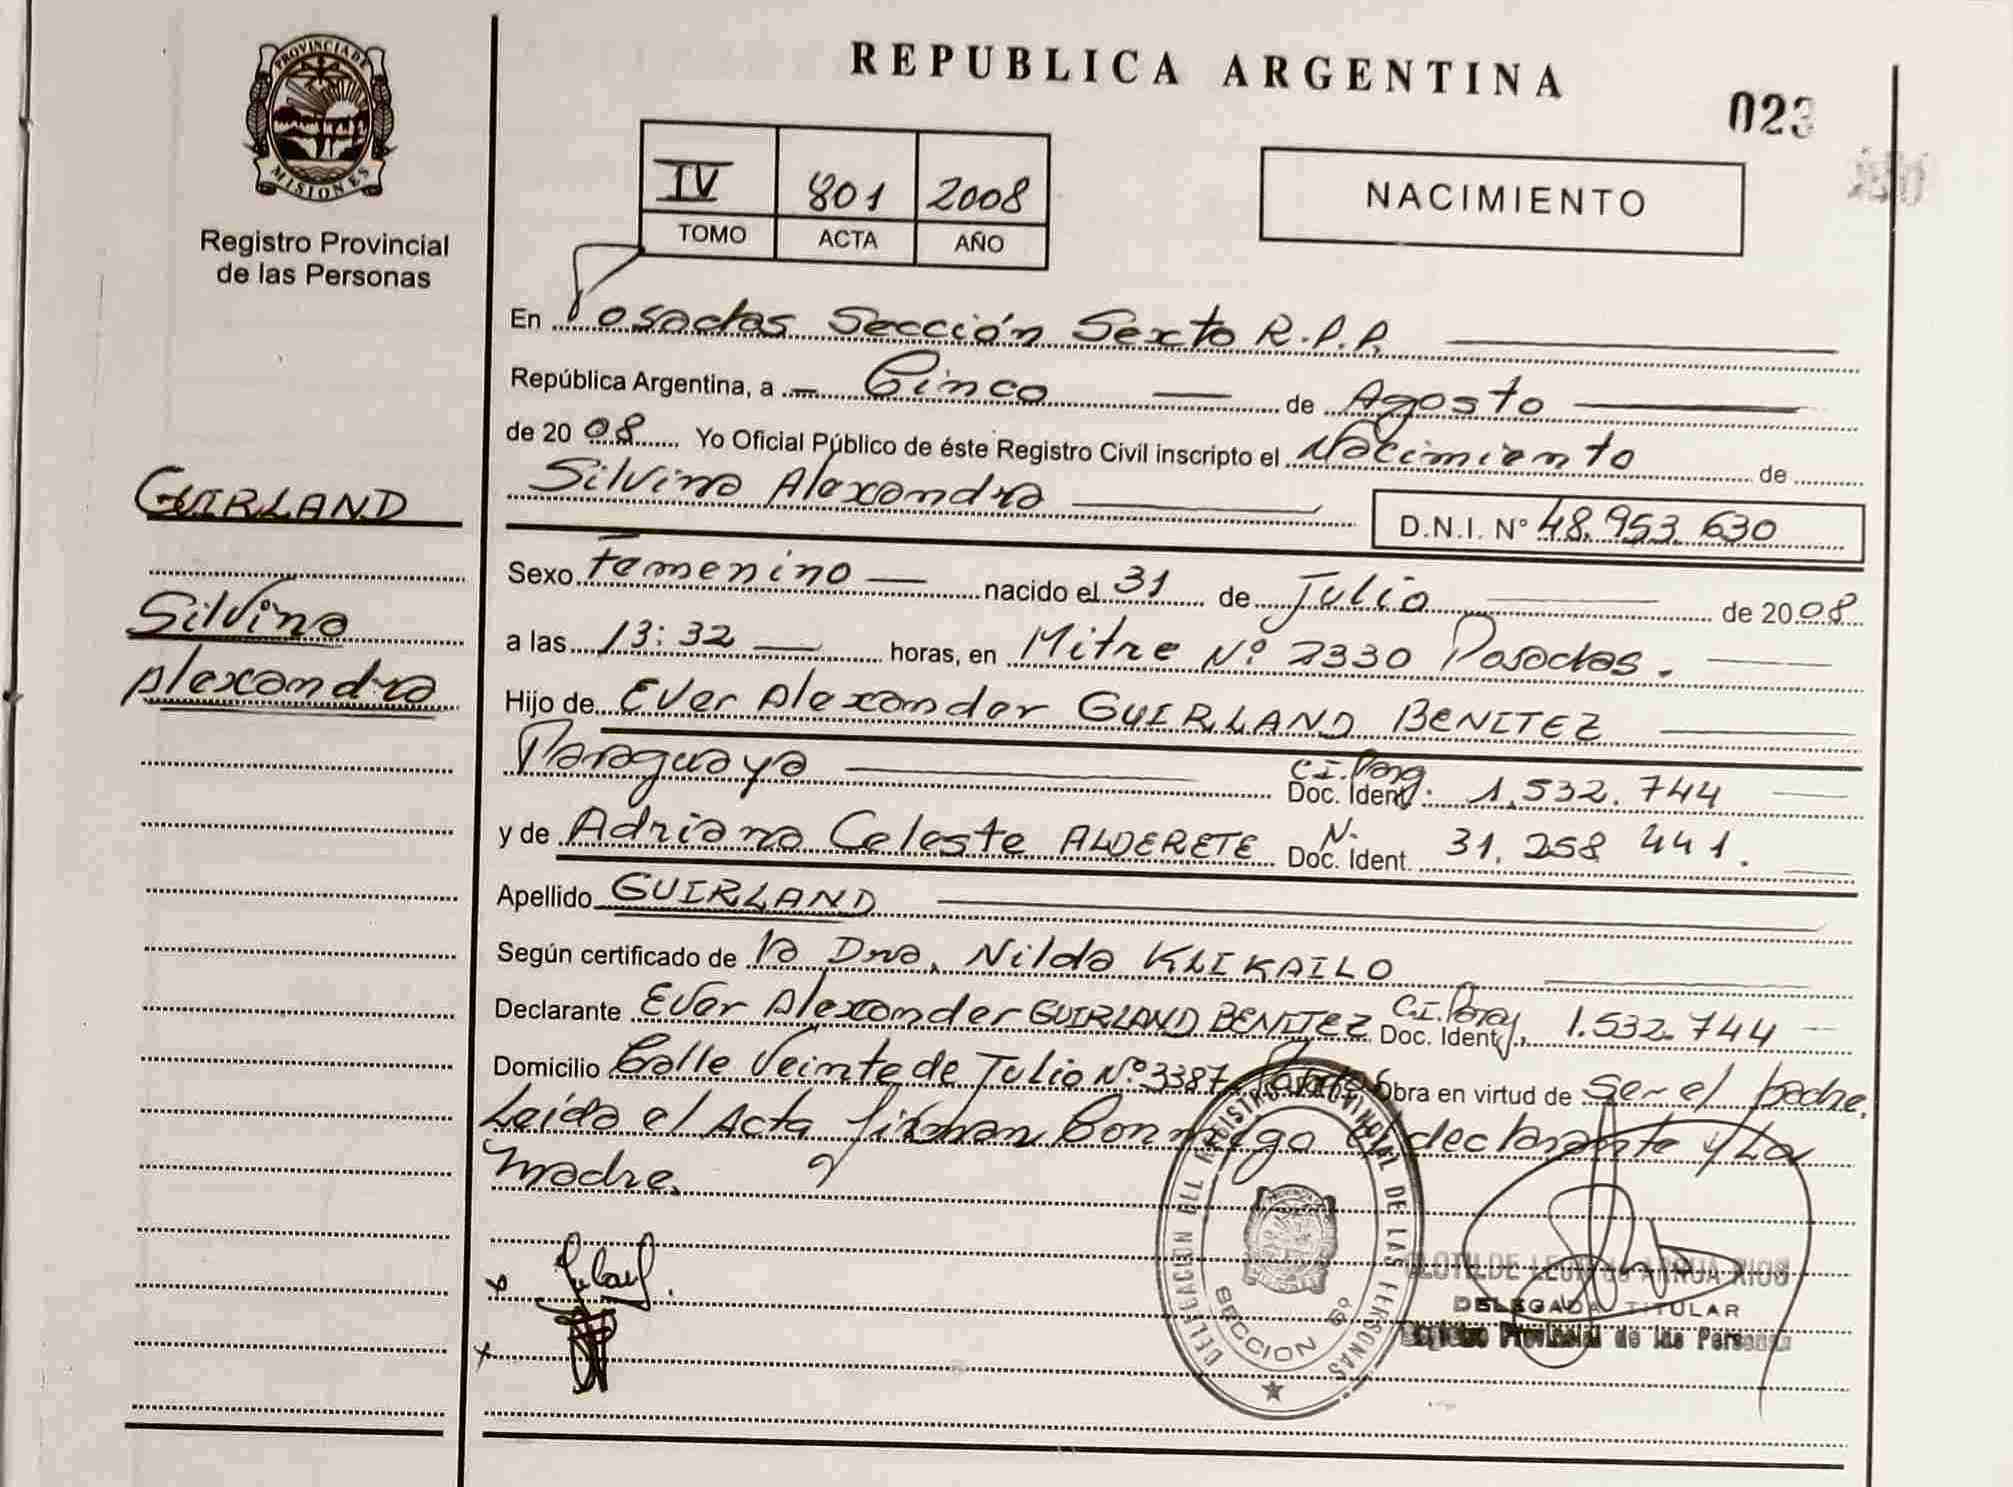 PROVINCIA DE
MISIONES
Registro Provincial
de las Personas
REPUBLICA ARGENTINA
023
IV 801 2008
TOMO ACTA AÑO
NACIMIENTO
En Posadas Sección Sexta R.P.P.
República Argentina, a Cinco de Agosto
de 2008 Yo Oficial Público de éste Registro Civil inscripto el Nacimiento de
Silvina Alexandra
D.N.I. Nº 48.953.630
GUIRLAND
Silvina
Alexandra
Sexo Femenino nacido el 31 de Julio de 2008
a las 13:32 horas, en Mitre Nº 2330 Posadas.
Hijo de Ever Alexander GUIRLAND BENITEZ
Paraguaya C.I. Parag. Doc. Ident. 1.532.744
y de Adriana Celeste ALDERETE N. Doc. Ident. 31.258 441.
Apellido GUIRLAND
Según certificado de la Dra. Nilda KLIKAILO
Declarante Ever Alexander GUIRLAND BENITEZ C.I. Parag. Doc. Ident. 1.532.744
Domicilio Calle Veinte de Julio Nº 3387 Obra en virtud de ser el padre.
Leída el Acta firman Conmigo el declarante y La
Madre.
DELEGACION DEL REGISTRO PROVINCIAL DE LAS PERSONAS
SECCION 6º
CLOTILDE LEON de ARRUA RIOS
DELEGADA TITULAR
Registro Provincial de las Personas